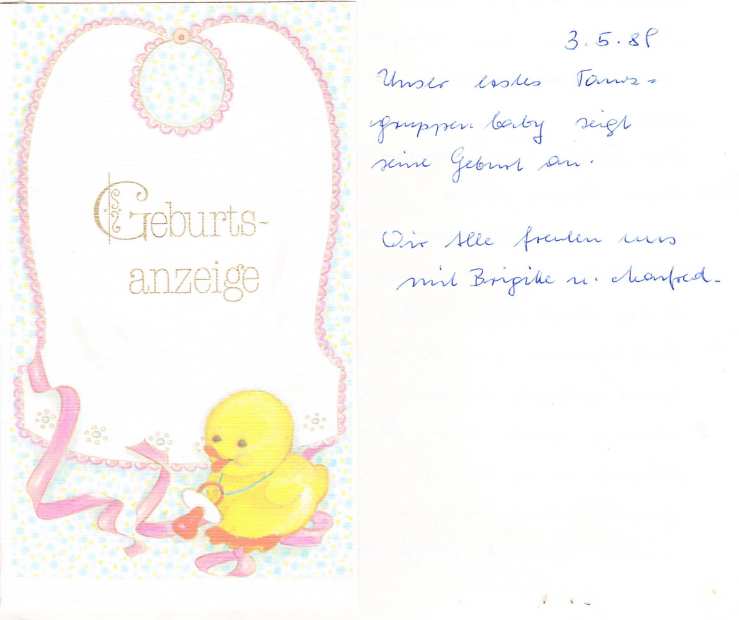 Geburts-
anzeige
3.5.88
Unser erstes Tanz-
gruppenbaby zeigt
seine Geburt an.
Wir Alle freuten uns
mit Brigitte u. Manfred.